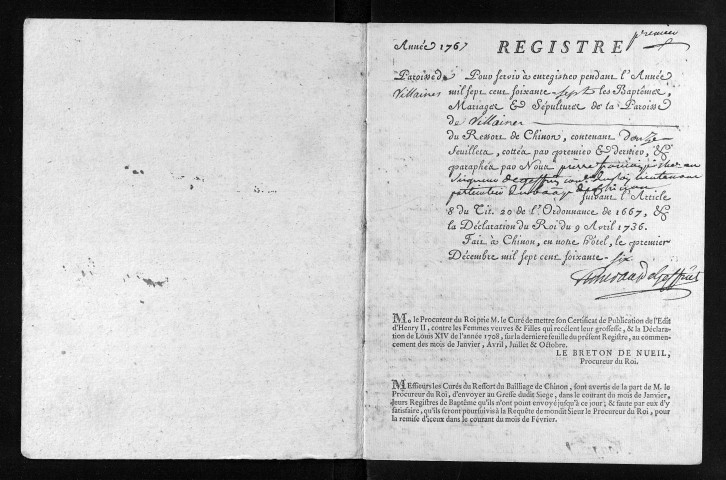 premier
Année 1767 REGISTRE
Paroisse de Pour servir à enregistrer pendant l'Année
Villaines mil sept cent soixante sept les Baptêmes,
Mariages & Sépultures de la Paroisse
de Villaines
du Ressort de Chinon, contenant douze
feuillets, cottés par premier & dernier, &
paraphés par Nous pierre
lieutenant
particulier chinon suivant l'Article
8 du Tit. 20 de l'Ordonnance de 1667, &
la Déclaration du Roi du 9 Avril 1736.
Fait à Chinon, en notre hôtel, le premier
Décembre mil sept cent soixante six
M. le Procureur du Roi prie M. le Curé de mettre son Certificat de Publication de l'Edit
d'Henry II, contre les Femmes veuves & Filles qui recélent leur grossesse, & la Déclara-
tion de Louis XIV de l'année 1708, sur la derniere feuille du présent Registre, au commen-
cement des mois de Janvier, Avril, Juillet & Octobre.
LE BRETON DE NUEIL,
Procureur du Roi.
MEssieurs les Curés du Ressort du Bailliage de Chinon, sont avertis de la part de M. le
Procureur du Roi, d'envoyer au Greffe dudit Siege, dans le courant du mois de Janvier,
leurs Registres de Baptême qu'ils n'ont point envoyé jusqu'à ce jour; & faute par eux d'y
satisfaire, qu'ils seront poursuivis à la Requête de mondit Sieur le Procureur du Roi, pour
la remise d'iceux dans le courant du mois de Février.